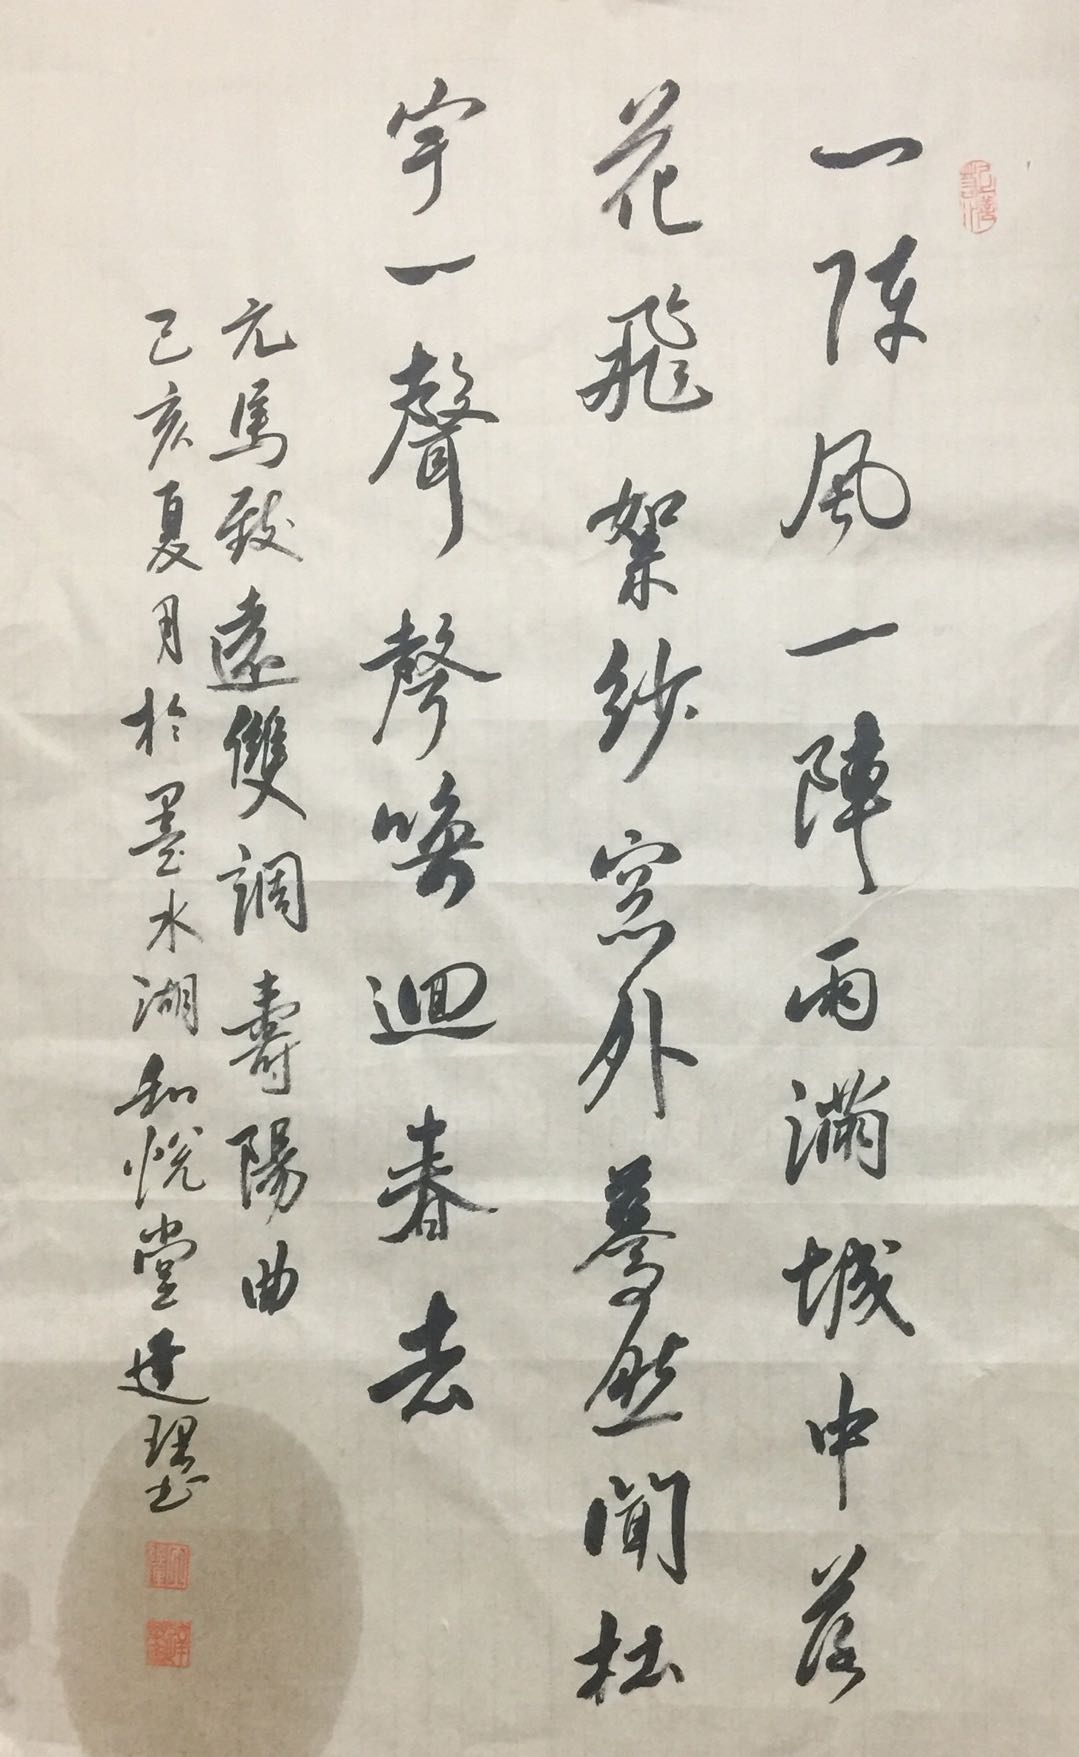 一陣風一陣雨滿城中落
花飛絮紗窓外驀然聞杜
宇一聲聲喚迴春去
元馬致遠雙調壽陽曲
己亥夏月於墨水湖和悅堂建